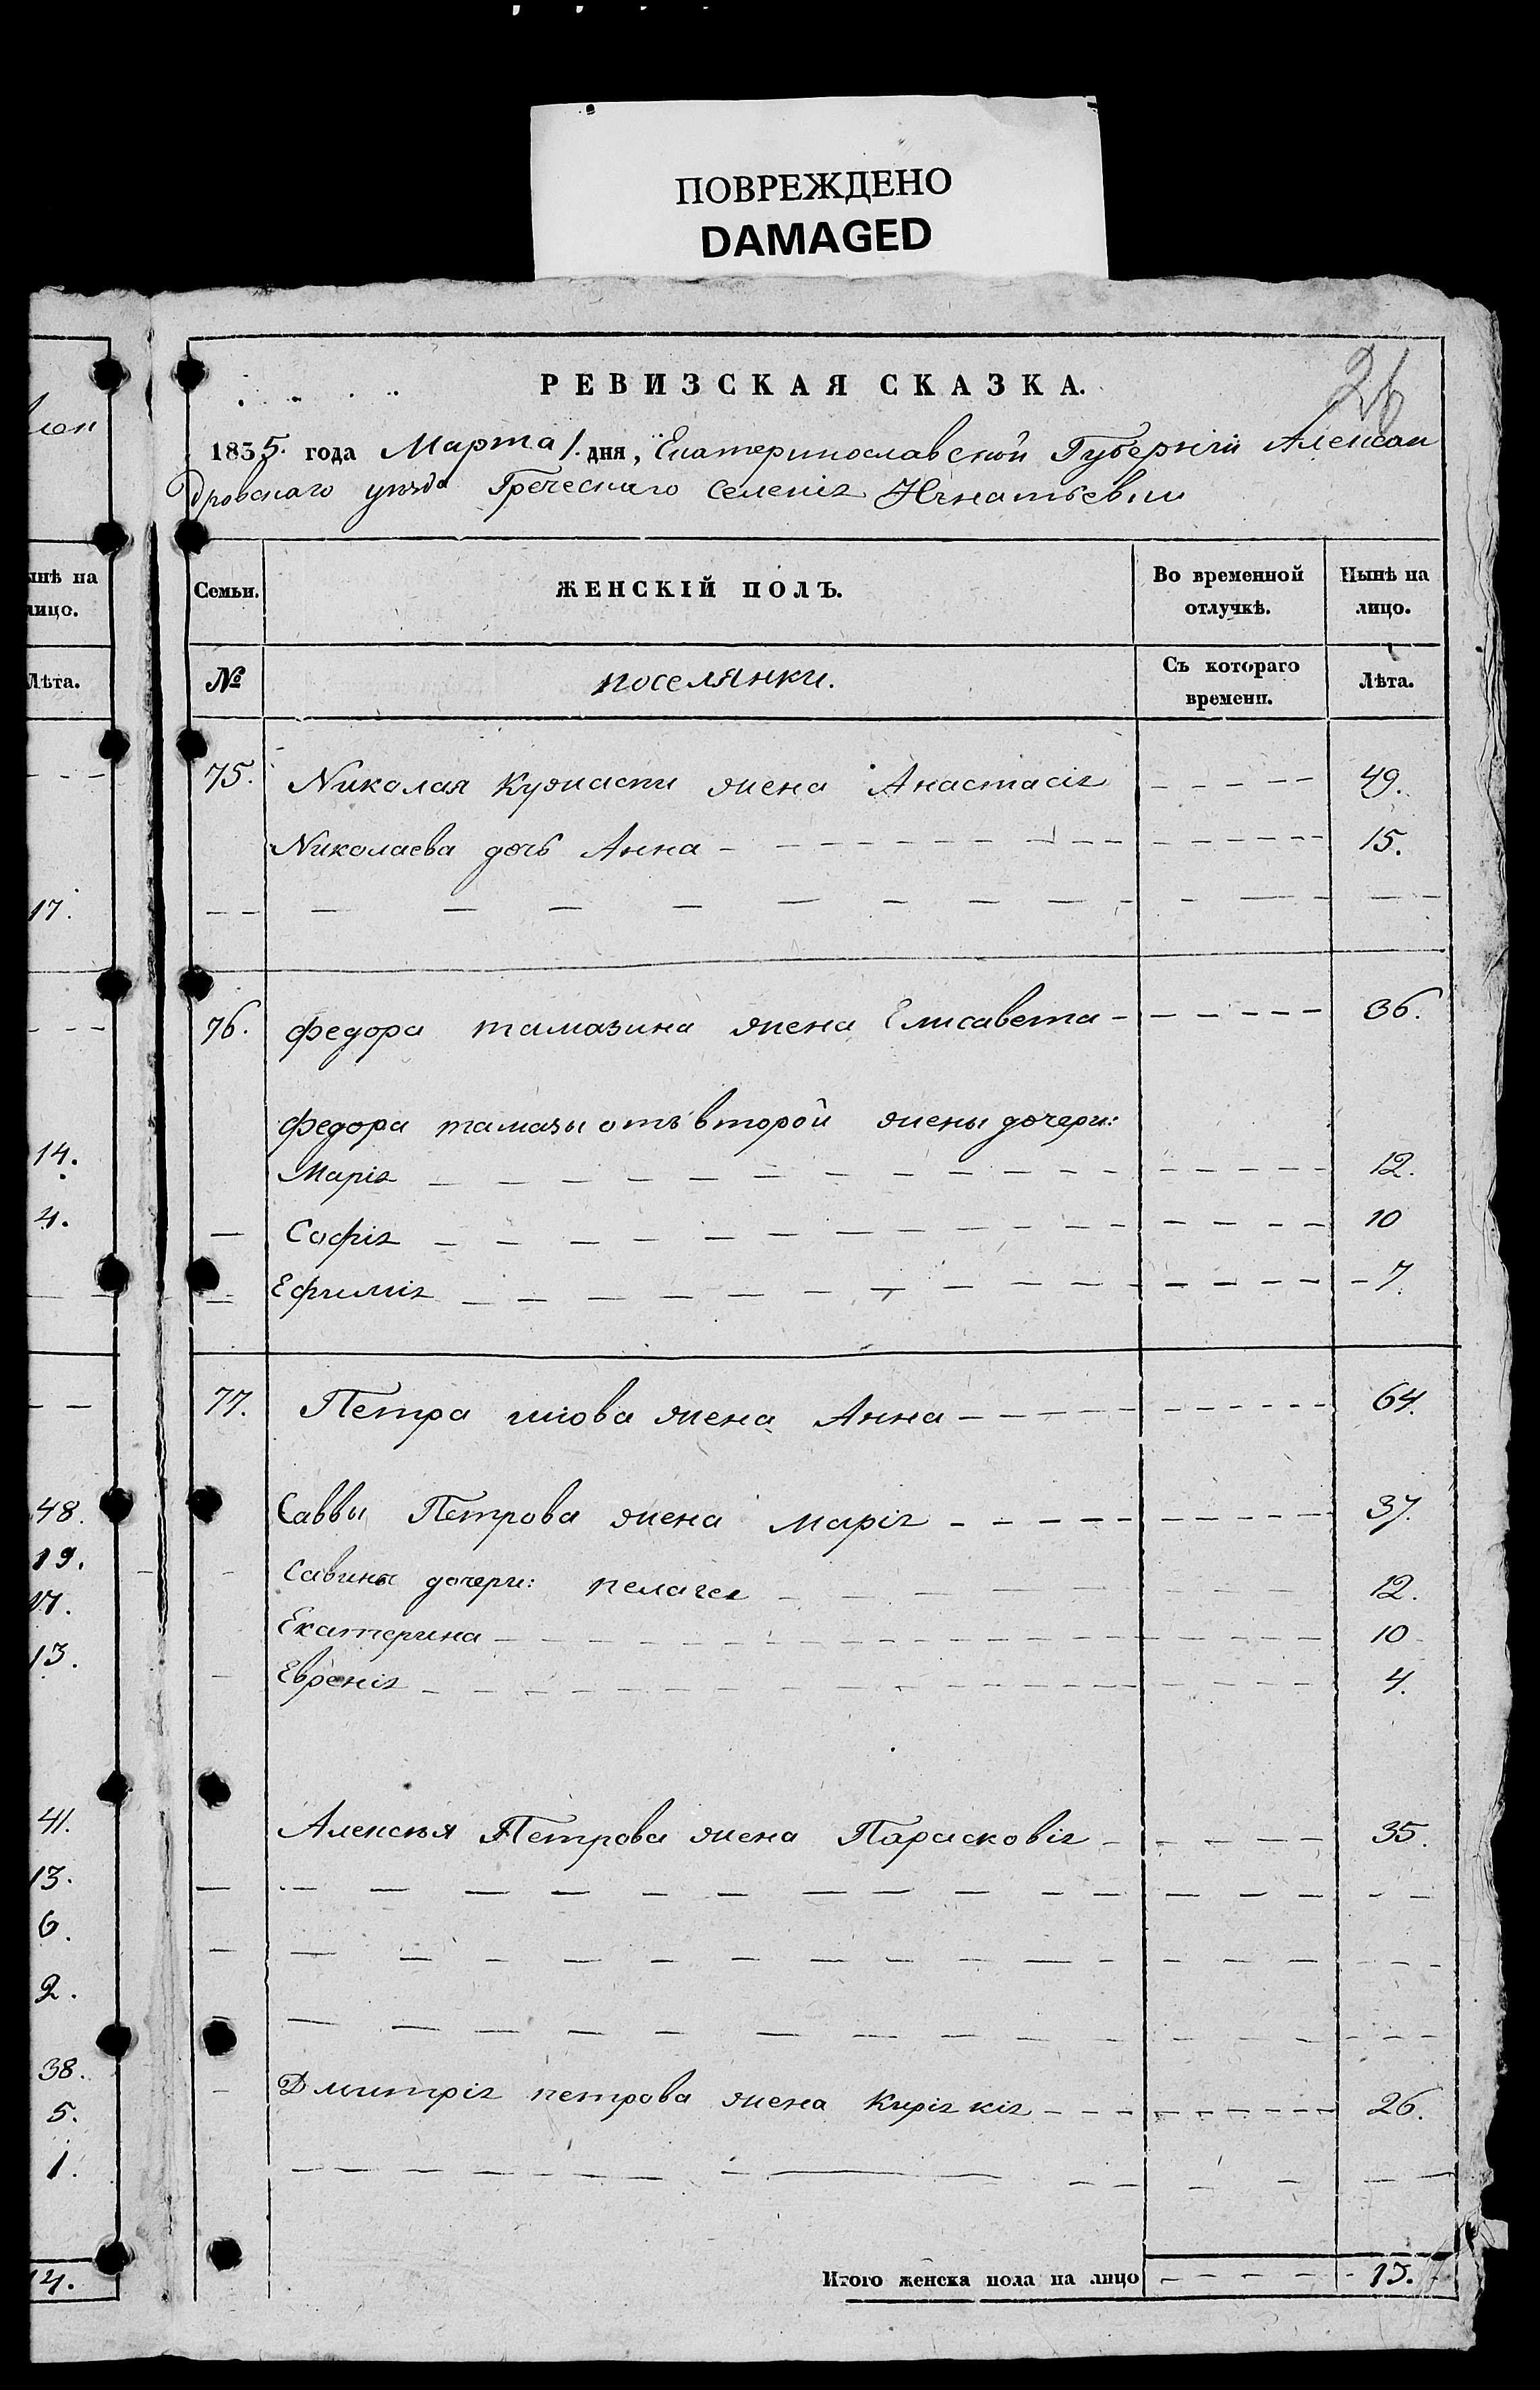 ПОВРЕЖДЕНО
DAMAGED
26
РЕВИЗСКАЯ СКАЗКА.
1835. года Марта 1. дня, Екатеринославской Губерніи Алексан
дровскаго уѣзда Греческаго селенія Игнатьевки
Семьи. ЖЕНСКІЙ ПОЛЪ. Во временной отлучкѣ. Нынѣ на лицо.
№ поселянки. Съ котораго времени. Лѣта.
75. Николая жена Анастасія - - - - 49.
Николаева дочь Анна - - - - 15.
76. Федора тамазина жена Елисавета - - - - 36.
Федора тамазы отъ второй жены дочери:
Марія - - - - 12.
Софія - - - - 10
Ефимія - - - - 7.
77. Петра жена Анна - - - - 64.
Саввы Петрова жена Марія - - - - 37.
Савины дочери: пелагея - - - - 12.
Екатерина - - - - 10
- - - - 4.
Алексѣя Петрова жена Парасковія - - - - 35.
Дмитрія петрова жена Киріякія - - - - 26.
Итого женска пола на лицо - - - - 13.
ынѣ на
лицо.
Лѣта.
17.
14.
4.
48.
19.
17.
13.
41.
13.
6.
2.
38.
5.
1.
14.